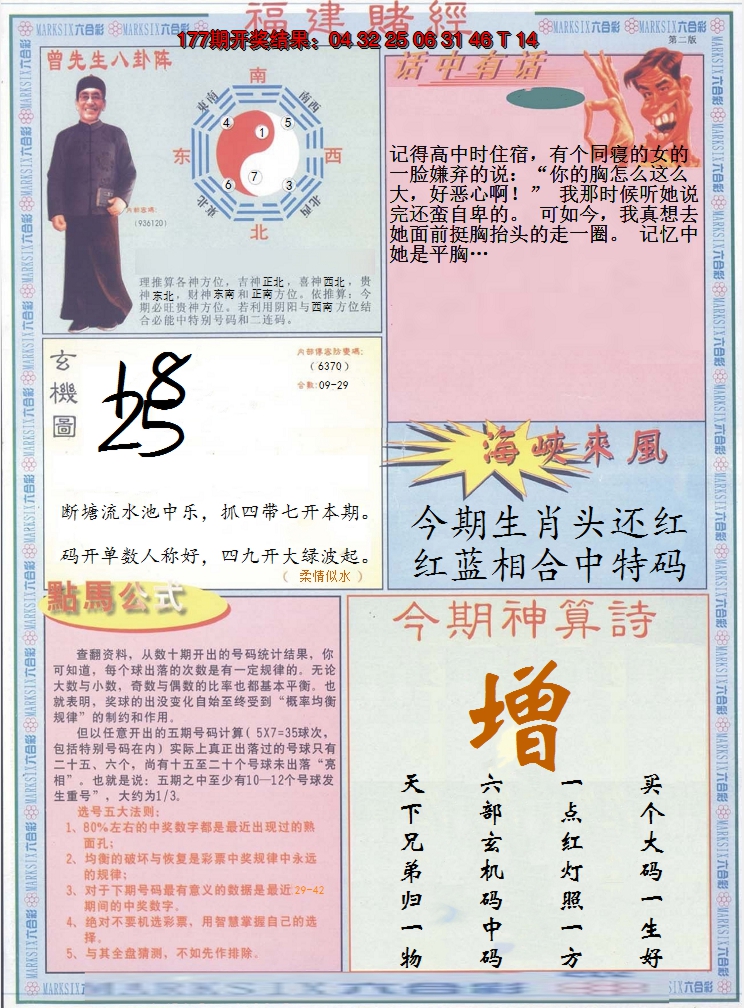 福建賭經
177期开奖结果：04 32 25 06 31 46 T 14
第二版
曾先生八卦阵
南
东南
西南
东
西
东北
西北
北
4
1
5
6
7
3
内部密碼：
（936120）
理推算各神方位，吉神正北，喜神西北，贵
神东北，财神东南和正南方位。依推算：今
期必旺贵神方位。若利用阴阳与西南方位结
合必能中特别号码和二连码。
话中有话
记得高中时住宿，有个同寝的女的
一脸嫌弃的说：“你的胸怎么这么
大，好恶心啊！” 我那时候听她说
完还蛮自卑的。 可如今，我真想去
她面前挺胸抬头的走一圈。 记忆中
她是平胸…
玄機圖
内部傳密防變碼：
（6370）
合數：09-29
断塘流水池中乐，抓四带七开本期。
码开单数人称好，四九开大绿波起。
（ 柔情似水 ）
海峽來風
今期生肖头还红
红蓝相合中特码
點馬公式
查翻资料，从数十期开出的号码统计结果，你
可知道，每个球出落的次数是有一定规律的。无论
大数与小数，奇数与偶数的比率也都基本平衡。也
就表明，奖球的出没变化自始至终受到“概率均衡
规律”的制约和作用。
但以任意开出的五期号码计算（5X7=35球次，
包括特别号码在内）实际上真正出落过的号球只有
二十五、六个，尚有十五至二十个号球未出落“亮
相”。也就是说：五期之中至少有10—12个号球发
生重号”，大约为1/3。
选号五大法则：
1、80%左右的中奖数字都是最近出现过的熟
面孔；
2、均衡的破坏与恢复是彩票中奖规律中永远
的规律；
3、对于下期号码最有意义的数据是最近29-42
期间的中奖数字。
4、绝对不要机选彩票，用智慧掌握自己的选
择。
5、与其全盘猜测，不如先作排除。
今期神算詩
增
买个大码一生好
一点红灯照一方
六部玄机码中码
天下兄弟归一物
MARKSIX六合彩